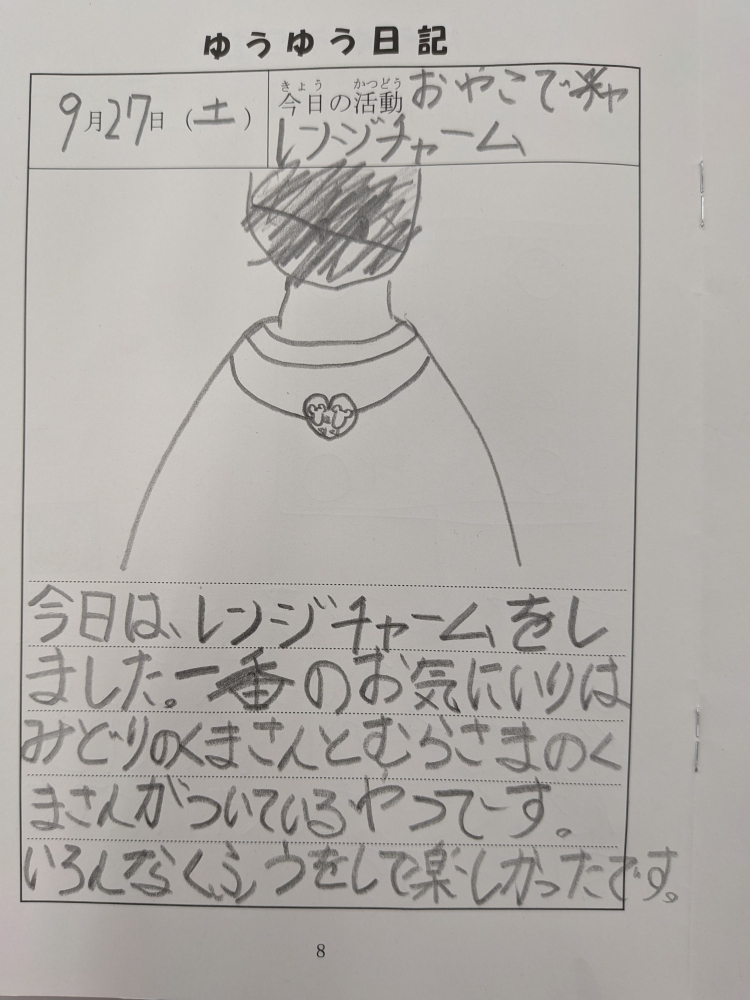 ゆうゆう日記
9月27日（土）
きょう かつどう
今日の活動 おやこでチャ
レンジチャーム
今日は、レンジチャームをし
ました。一番のお気にいりは
みどりのくまさんとむらさきのく
まさんがついているやつでーす。
いろんなくふうをして楽しかったです。
8